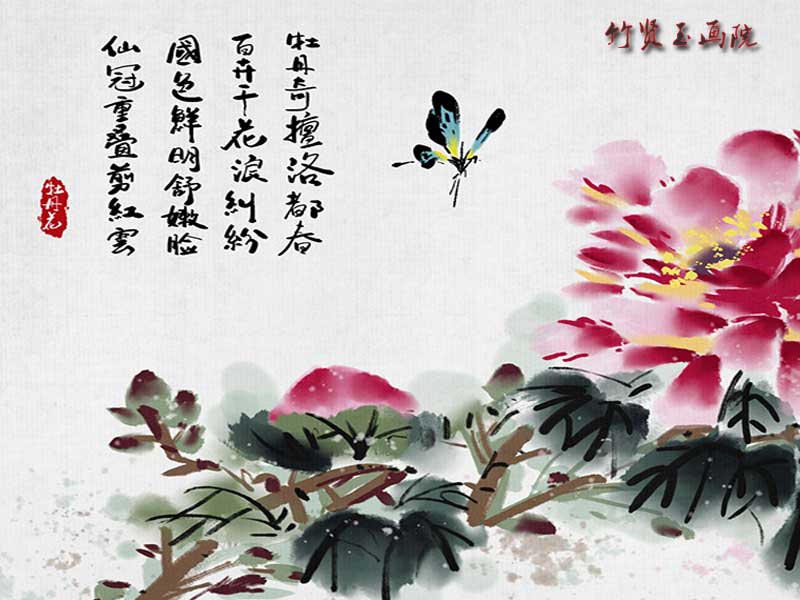 牡丹奇擅洛都春
百卉千花浪糾紛
國色鮮明舒嫩脸
仙冠重叠剪紅雲
牡丹花
竹贤玉画院